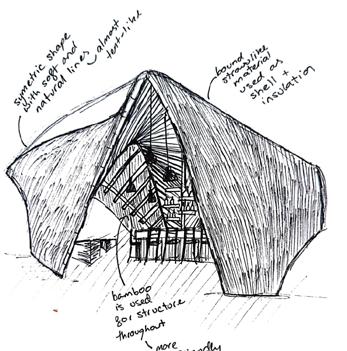 symetric shape
with soft and
natural lines
almost
tent-like
bound
straw-like
material
used as
shell +
insulation
bamboo
is used
for structure
throughout
more